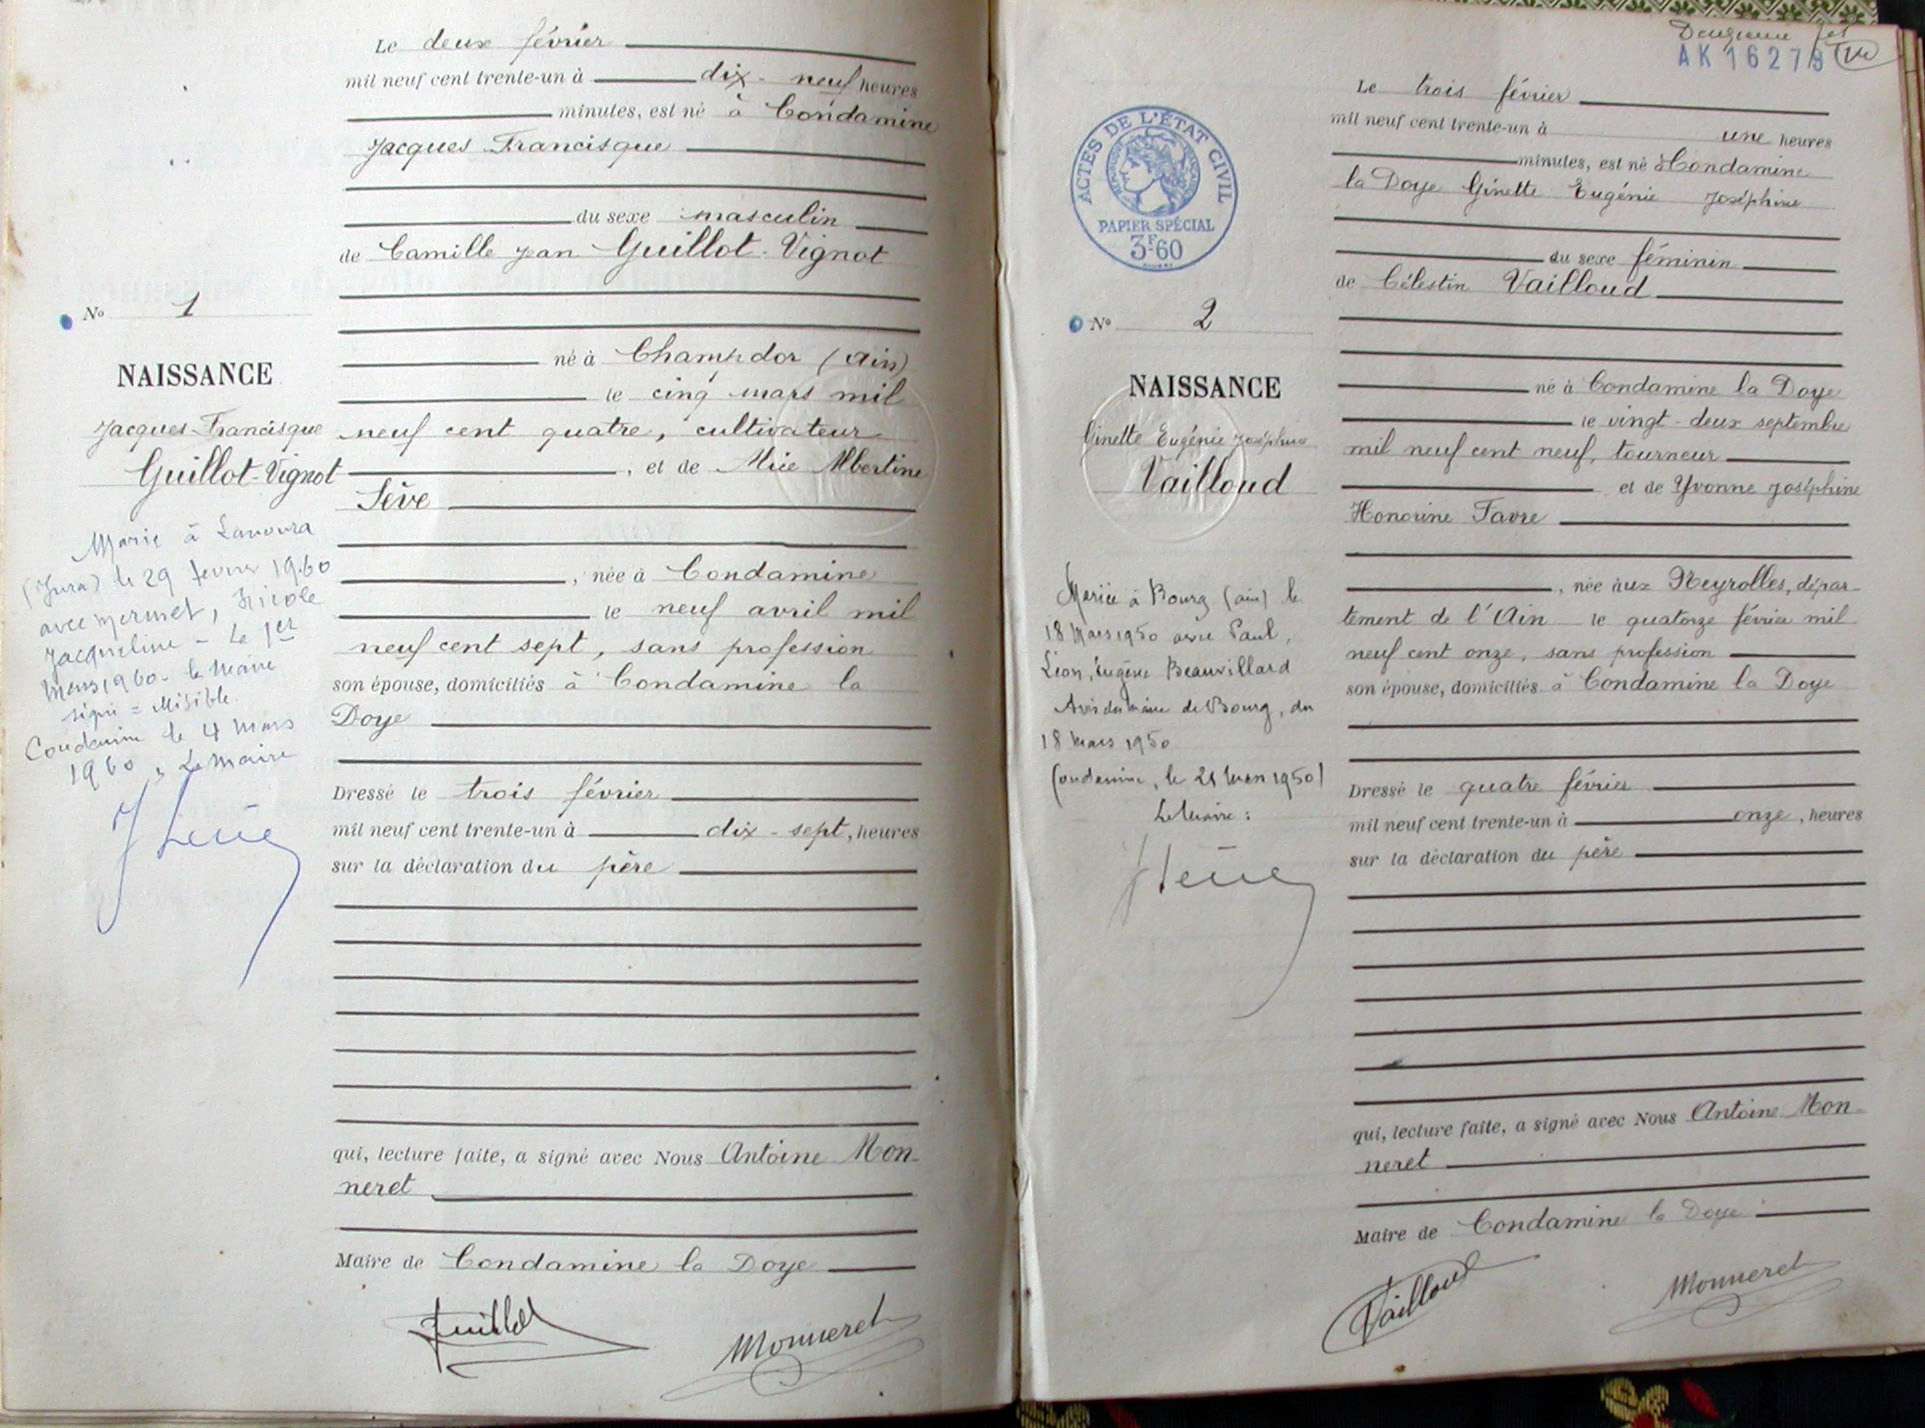 Le deux février
mil neuf cent trente-un à dix-neuf heures
minutes, est né à Condamine
Jacques Francisque
du sexe masculin
de Camille Jean Guillot-Vignot
né à Champdor (Ain)
le cinq mars mil
neuf cent quatre, cultivateur
, et de Alice Albertine
Sève
, née à Condamine
le neuf avril mil
neuf cent sept, sans profession
son épouse, domiciliés à Condamine la
Doye
Dressé le trois février
mil neuf cent trente-un à dix-sept, heures
sur la déclaration du père
qui, lecture faite, a signé avec Nous Antoine Mon
neret
Maire de Condamine la Doye
Monneret
No 1
NAISSANCE
Jacques-Francisque
Guillot-Vignot
Marié à Lamoura
(Jura) le 29 février 1960
avec Mermet, Nicole
Jacqueline - Le 1er
Mars 1960 - le Maire
signé = illisible
Condamine le 4 Mars
1960, Le Maire
Deuxième
AK 16278
ACTES DE L'ÉTAT CIVIL
PAPIER SPÉCIAL
3F60
No 2
NAISSANCE
Ginette Eugénie Joséphine
Vailloud
Mariée à Bourg (ain) le
18 Mars 1950 avec Paul,
Léon, Eugène Beauvillard
Avis du maire de Bourg, du
18 mars 1950
Condamine, le 21 Mars 1950
Le Maire :
Le trois février
mil neuf cent trente-un à une heures
minutes, est né à Condamine
la Doye Ginette Eugénie Joséphine
du sexe féminin
de Célestin Vailloud
né à Condamine la Doye
le vingt-deux septembre
mil neuf cent neuf, tourneur
et de Yvonne Joséphine
Honorine Favre
, née aux Neyrolles, dépar-
tement de l'Ain le quatorze février mil
neuf cent onze, sans profession
son épouse, domiciliés à Condamine la Doye
Dressé le quatre février
mil neuf cent trente-un à onze, heures
sur la déclaration du père
qui, lecture faite, a signé avec Nous Antoine Mon-
neret
Maire de Condamine la Doye
Vailloud
Monneret